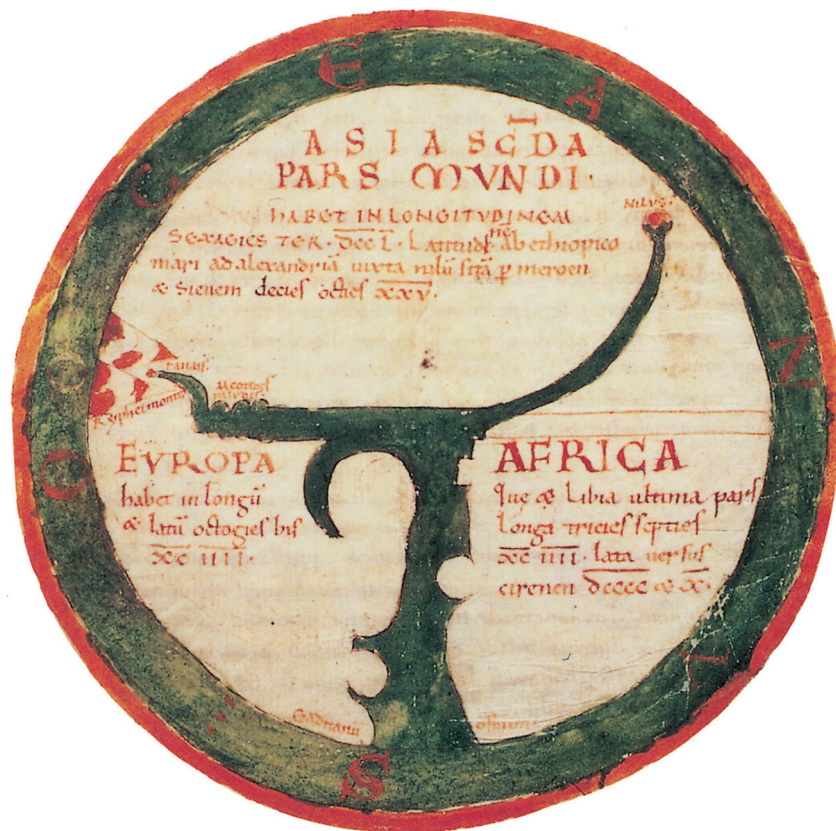 ASIA SCDA
PARS MVNDI·
HABET IN LONGITVDINEM
SEXAGIES TER· DCCL· Latitudinē ab ethiopico
mari ad alexandriā iuxta nilū sitā p meroen
& Sienem decies octies XXV·
NILUS·
tanais·
Meotides
paludes
Ryphei montes
EVROPA
habet in longū
& latū octogies bis
XC IIII·
AFRICA
Que & Libia ultima pars
Longa tricies septies
XC IIII· lata uersus
cirenen DCCCC & X·
Gaditanū
OCCEANZ
S